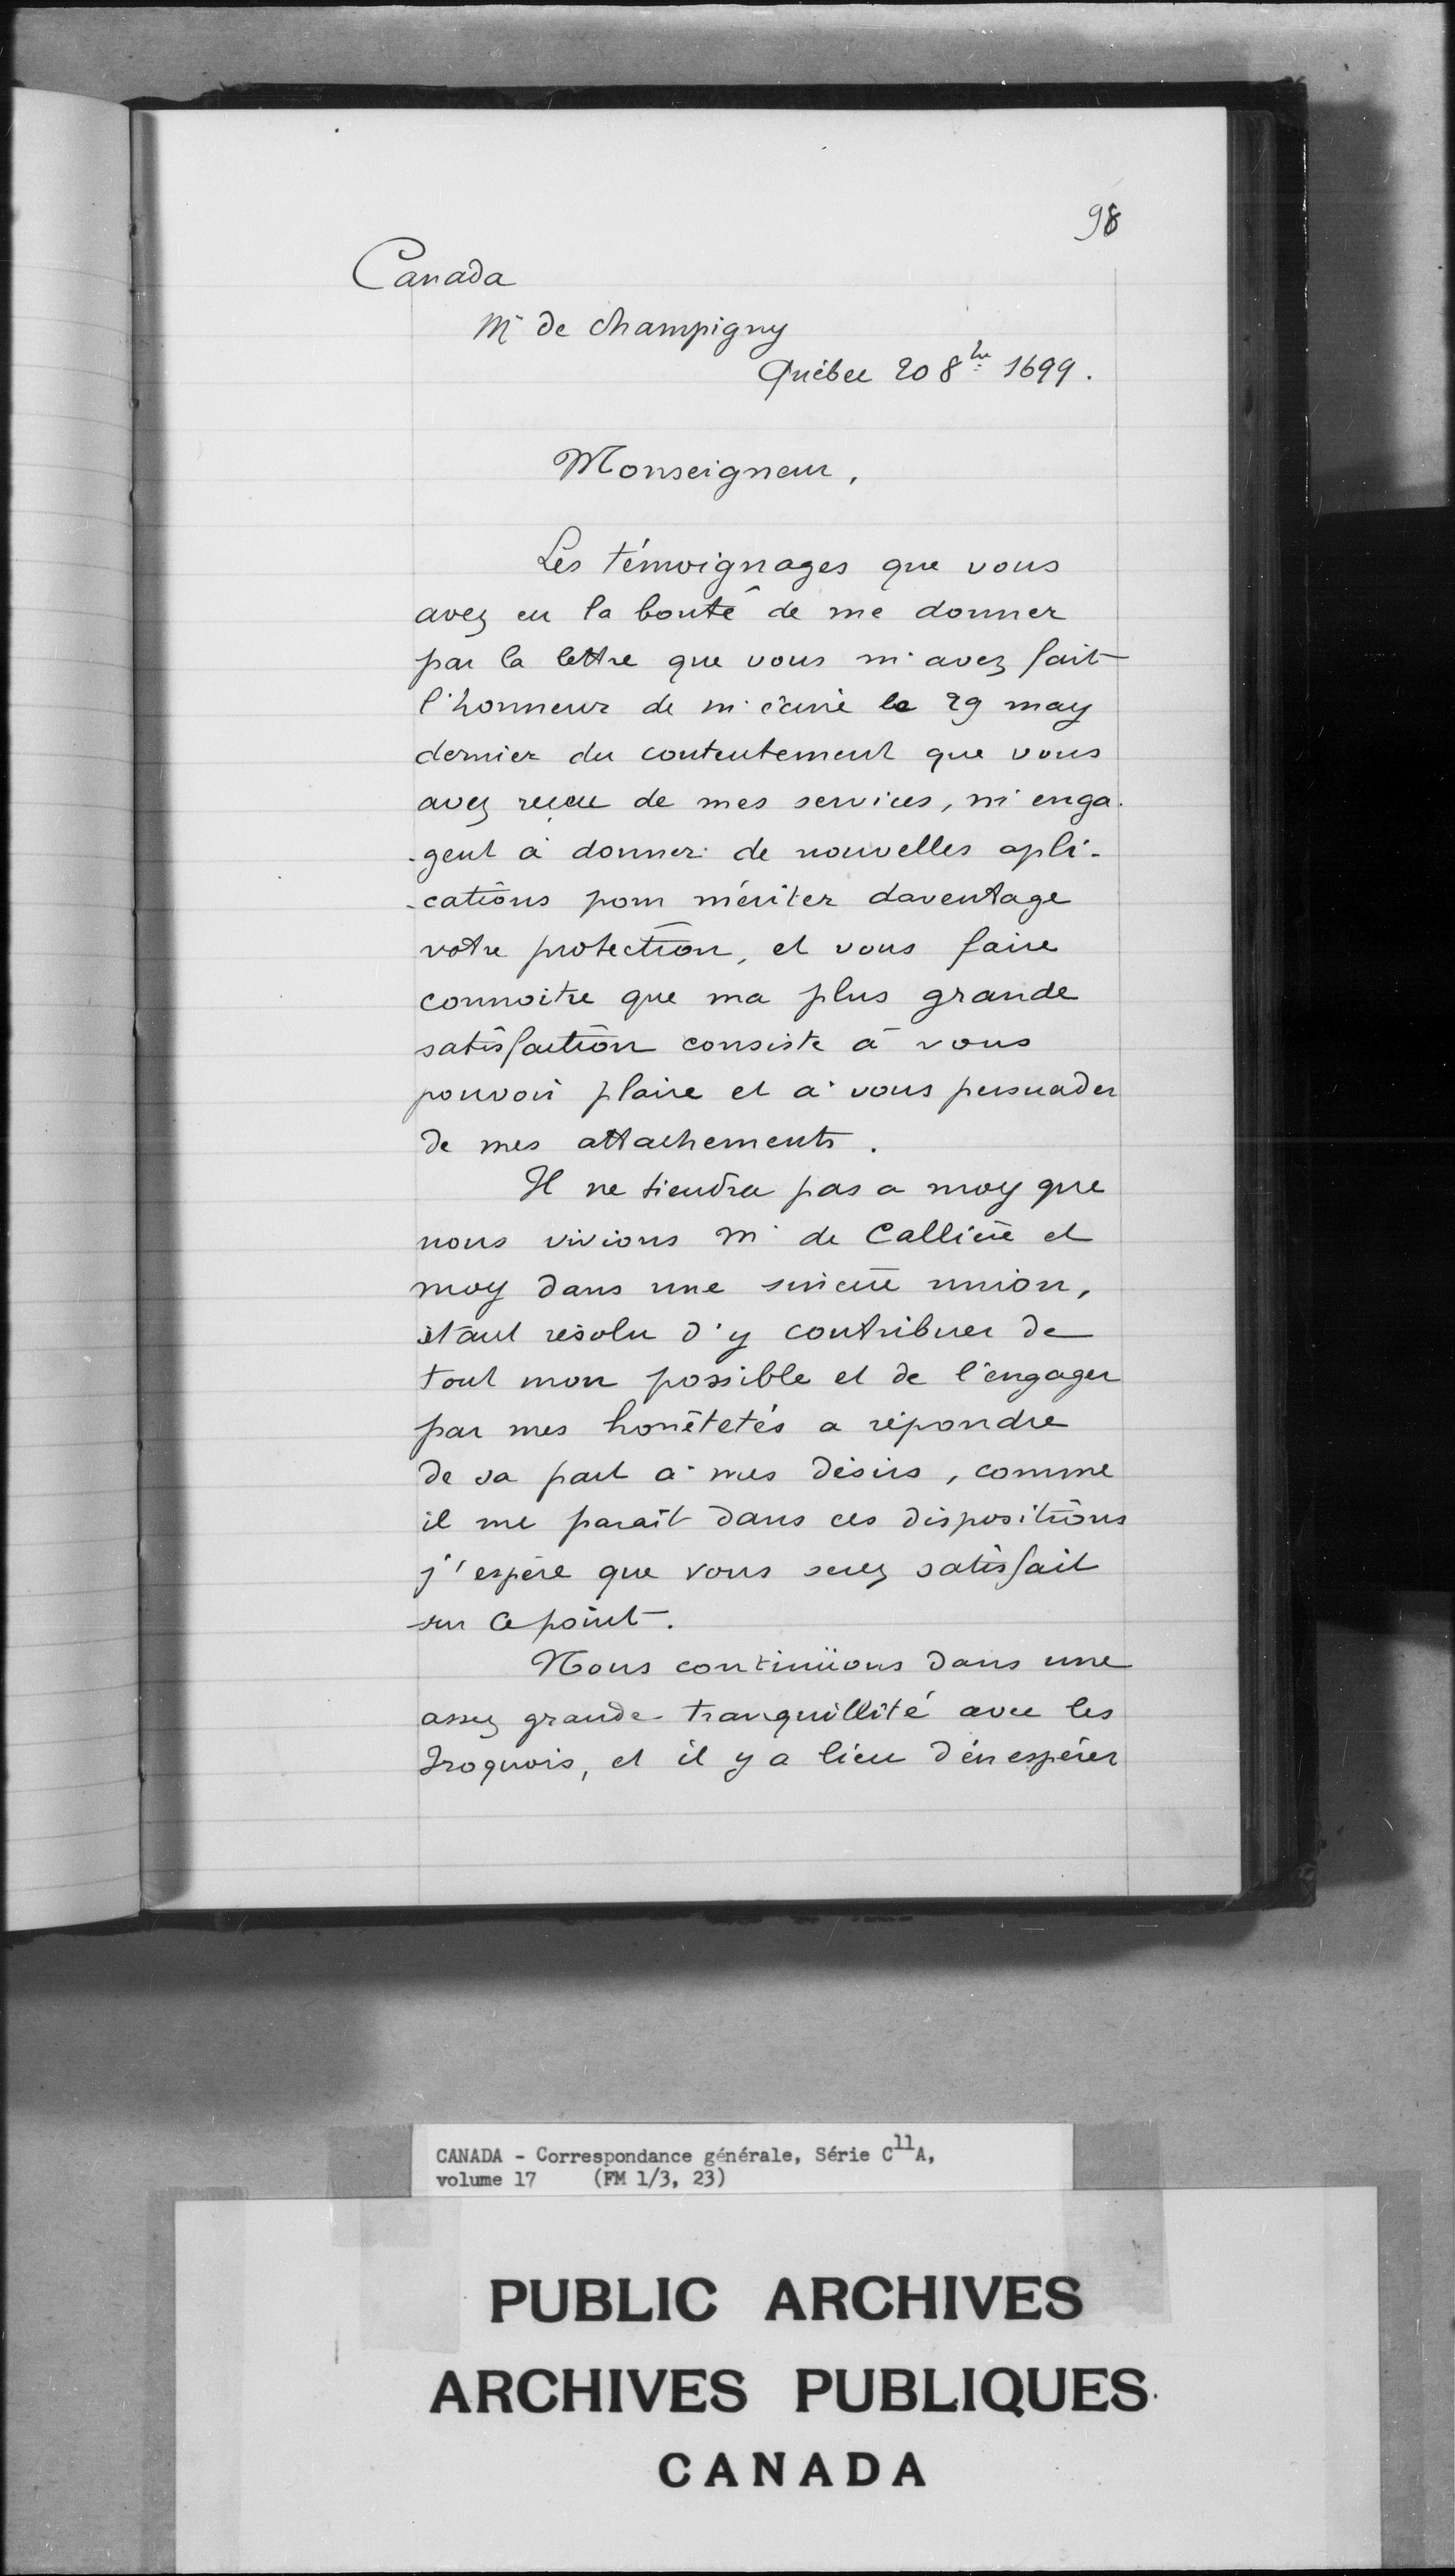 98
Canada
Mr de Champigny
Québec 20 8bre 1699.
Monseigneur,
Les témoignages que vous
avez eu la bonté de me donner
par la lettre que vous m'avez fait
l'honneur de m'écrire le 29 may
dernier du contentement que vous
avez reçeu de mes services, m'enga-
-gent à donner de nouvelles apli-
-cations pour mériter daventage
votre protection, et vous faire
connoitre que ma plus grande
satisfaction consiste à vous
pouvoir plaire et à vous persuader
de mes attachements.
Il ne tiendra pas a moy que
nous vivions Mr de Calliere et
moy dans une sincere union,
étant résolu d'y contribuer de
tout mon possible et de l'engager
par mes honêtetés a répondre
de sa part à mes désirs, comme
il me parait dans ces dispositions
j'espére que vous serez satisfait
sur ce point.
Nous continüons dans une
assez grande tranquillité avec les
Iroquois, et il y a lieu d'en espérer
CANADA - Correspondance générale, Série C11A,
volume 17 (FM 1/3, 23)
PUBLIC ARCHIVES
ARCHIVES PUBLIQUES
CANADA